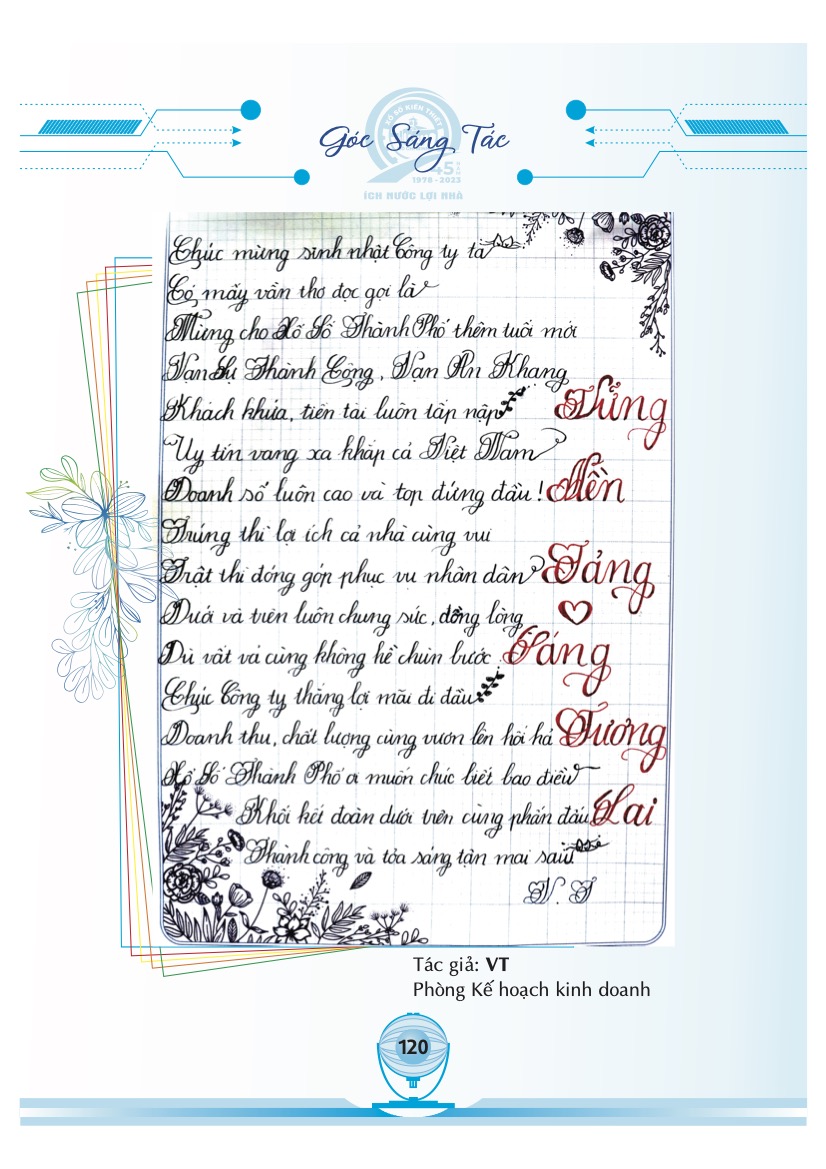 XỔ SỐ KIẾN THIẾT
Góc Sáng Tác
45
1978 - 2023
ÍCH NƯỚC LỢI NHÀ
Chúc mừng sinh nhật Công ty ta
Có mấy vần thơ đọc gọi là
Mừng cho Xổ Số Thành Phố thêm tuổi mới
Vạn Sự Thành Công, Vạn An Khang
Khách khứa, tiền tài luôn tấp nập
Vững
Uy tín vang xa khắp cả Việt Nam
Doanh số luôn cao và top đứng đầu !
Nền
Trúng thì lợi ích cả nhà cùng vui
Trật thì đóng góp phục vụ nhân dân
Tảng
Dưới và trên luôn chung sức, đồng lòng
Dù vất vả cũng không hề chùn bước
Sáng
Chúc Công ty thắng lợi mãi đi đầu
Doanh thu, chất lượng cùng vươn lên hối hả
Tương
Xổ Số Thành Phố ơi muốn chúc biết bao điều
Khối kết đoàn dưới trên cùng phấn đấu
Lai
Thành công và tỏa sáng tận mai sau
V.T
Tác giả: VT
Phòng Kế hoạch kinh doanh
120